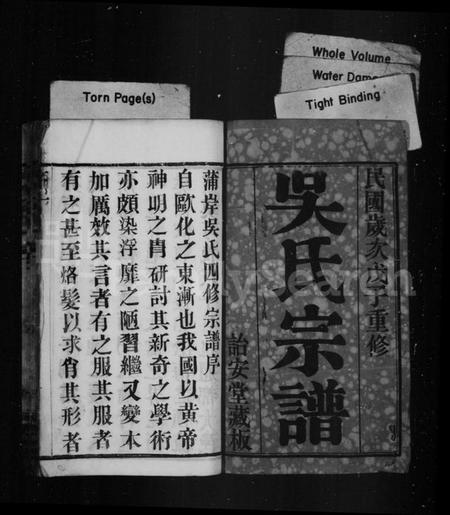 Whole Volume
Water Dama
Tight Binding
Torn Page(s)
民國歲次戊子重修
吳氏宗譜
詒安堂藏板
蒲岸吳氏四修宗譜序
自歐化之東漸也我國以黃帝
神明之胄研討其新奇之學術
亦頗染浮靡之陋習繼又變本
加厲效其言者有之服其服者
有之甚至烙髮以求肖其形者